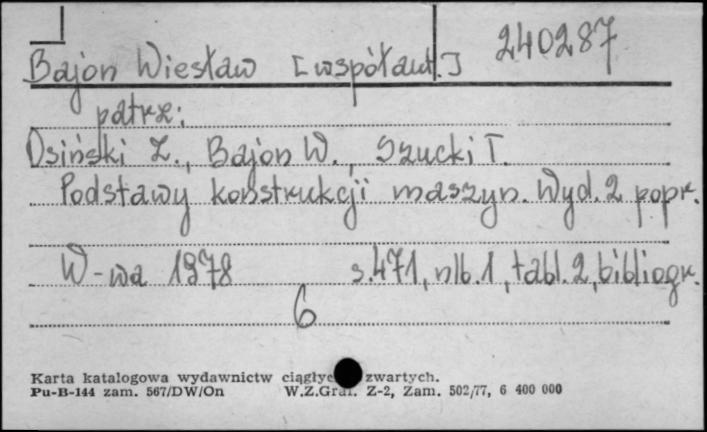 Bajon Wiesław [współaut.] 240287
patrz:
Osiński Z., Bajon W., Szucki T.
Podstawy konstrukcji maszyn. Wyd. 2 popr.
W-wa 1978 s. 471, nlb. 1, tabl. 2, bibliogr.
6
Karta katalogowa wydawnictw zwartych.
Pu-B-144 zam. 567/DW/On W.Z.Graf. Z-2, Zam. 502/77, 6 400 000